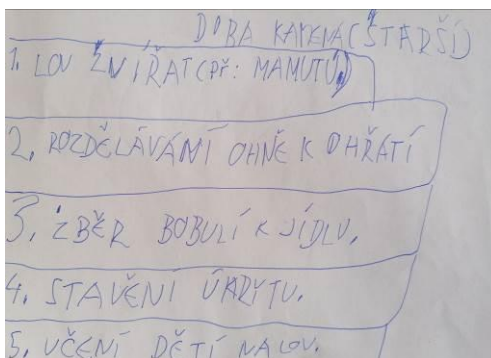 DOBA KAMENÁ (STARŠÍ)
1. LOV ZVÍŘAT (PŘ: MAMUTŮ)
2. ROZDĚLÁVÁNÍ OHNĚ K OHŘÁTÍ
3. ZBĚR BOBULÍ K JÍDLU.
4. STAVĚNÍ ÚKRYTU.
5. UČENÍ DĚTÍ NA LOV.